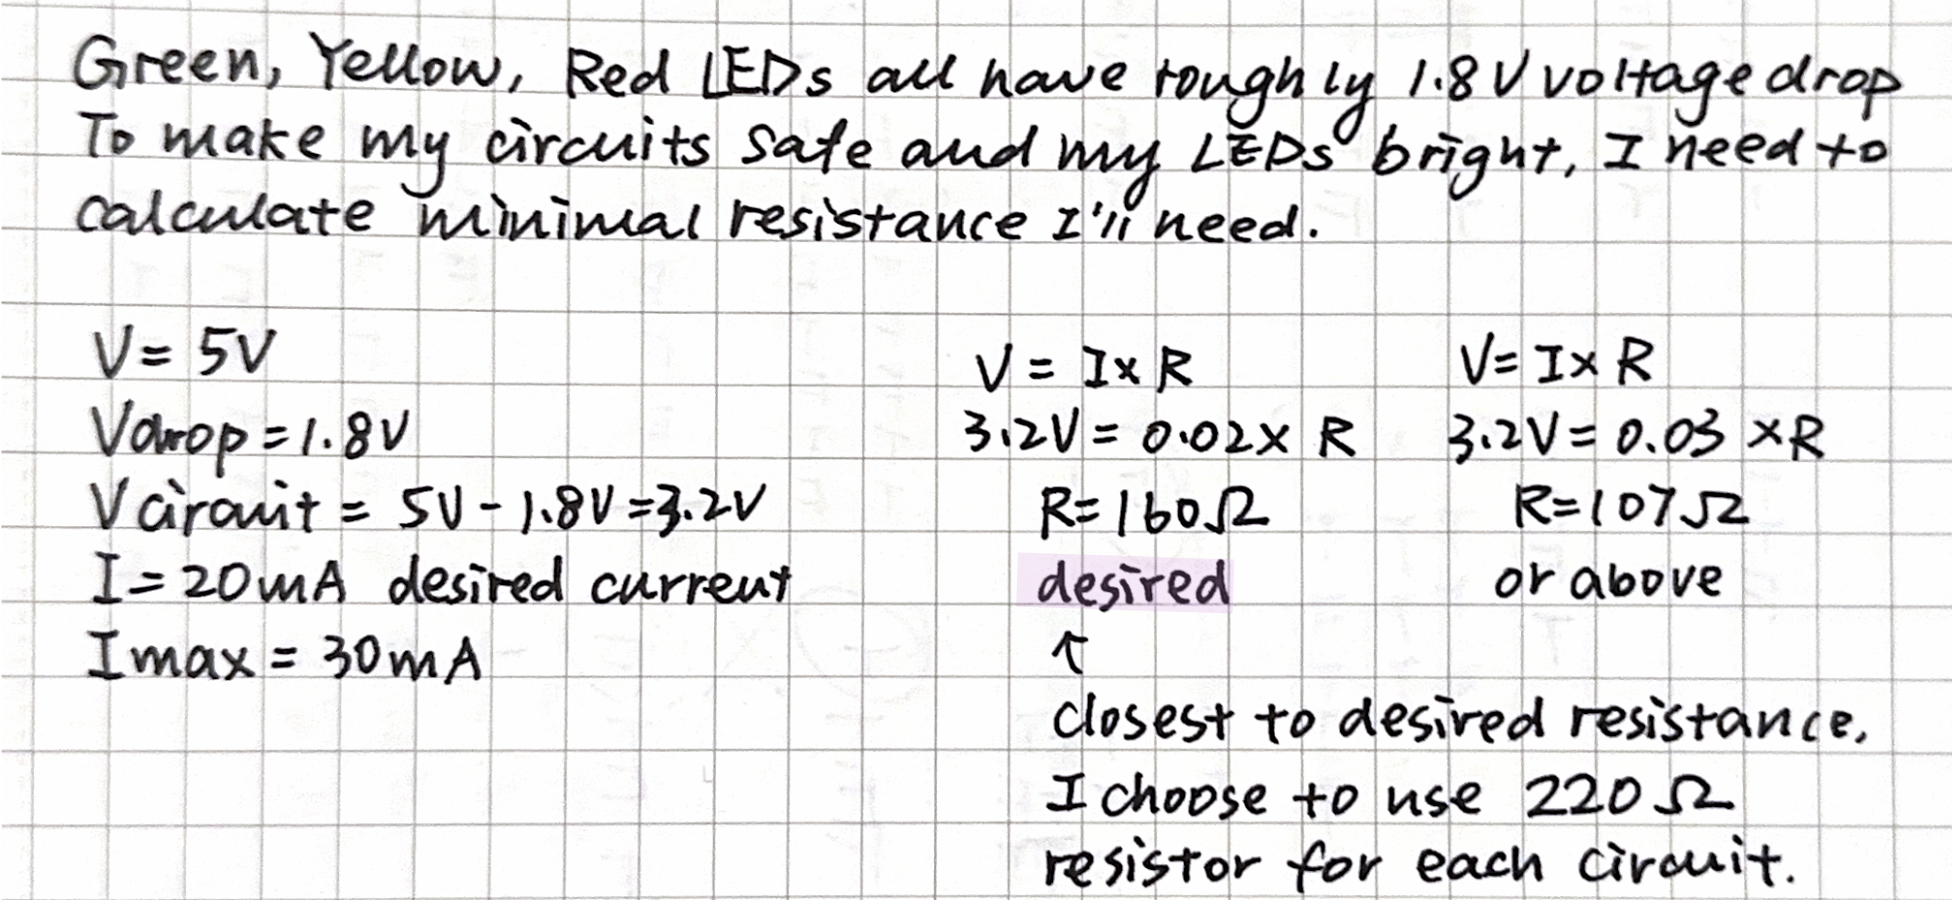 Green, Yellow, Red LEDs all have roughly 1.8V voltage drop
To make my circuits safe and my LEDs bright, I need to
calculate minimal resistance I'll need.
V = 5V
Vdrop = 1.8V
Vcircuit = 5V - 1.8V = 3.2V
I = 20mA desired current
Imax = 30mA
V = I x R
3.2V = 0.02 x R
R = 160Ω
desired
↑
closest to desired resistance.
I choose to use 220Ω
resistor for each circuit.
V = I x R
3.2V = 0.03 x R
R = 107Ω
or above